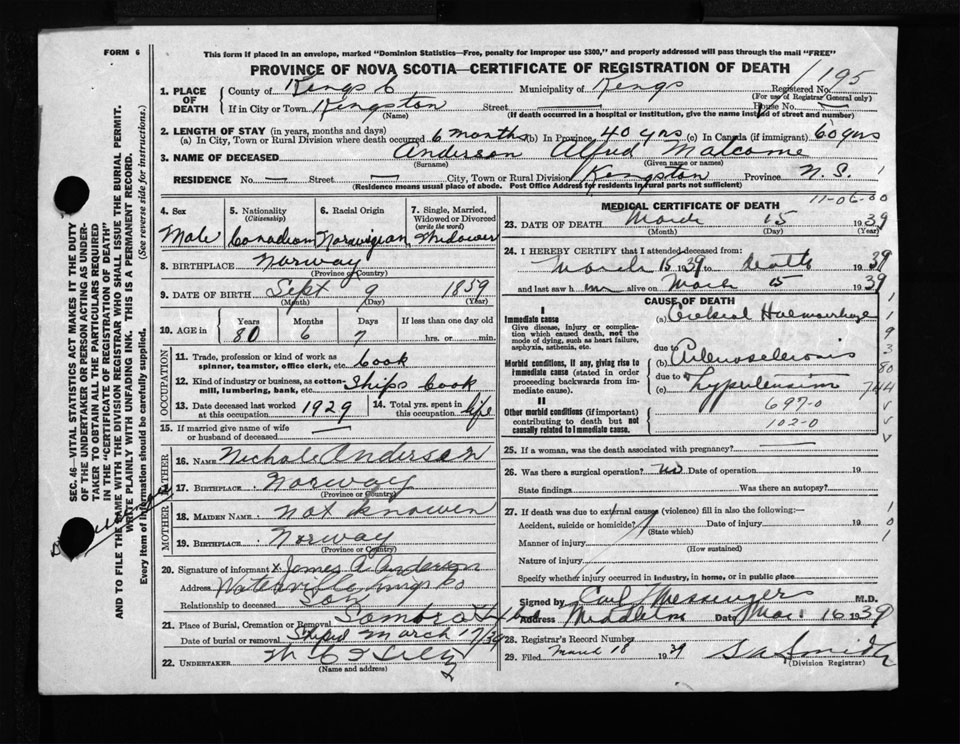 FORM 6
This form if placed in an envelope, marked "Dominion Statistics—Free, penalty for improper use $300," and properly addressed will pass through the mail "FREE"
PROVINCE OF NOVA SCOTIA—CERTIFICATE OF REGISTRATION OF DEATH
1. PLACE OF DEATH County of Kings Co Municipality of Kings Registered No. 195
(For use of Registrar General only)
If in City or Town Kingston Street — House No. —
(Name) (If death occurred in a hospital or institution, give the name instead of street and number)
2. LENGTH OF STAY (in years, months and days)
(a) In City, Town or Rural Division where death occurred 6 months (b) In Province 40 yrs (c) In Canada (if immigrant) 60 yrs
3. NAME OF DECEASED Anderson Alfred Malcome
(Surname) (Given name or names)
RESIDENCE No. — Street — City, Town or Rural Division Kingston Province N.S.
(Residence means usual place of abode. Post Office Address for residents in rural parts not sufficient)
4. Sex Male
5. Nationality (Citizenship) Canadian
6. Racial Origin Norwigean
7. Single, Married, Widowed or Divorced (write the word) Widower
8. BIRTHPLACE Norway
(Province or Country)
9. DATE OF BIRTH Sept 9 1859
(Month) (Day) (Year)
10. AGE in Years 80 Months 6 Days 7 If less than one day old hrs. or min.
OCCUPATION
11. Trade, profession or kind of work as spinner, teamster, office clerk, etc. Cook
12. Kind of industry or business, as cotton-mill, lumbering, bank, etc. Ships Cook
13. Date deceased last worked at this occupation 1929 14. Total yrs. spent in this occupation life
15. If married give name of wife or husband of deceased —
FATHER
16. NAME Nichole Anderson
17. BIRTHPLACE Norway
(Province or Country)
MOTHER
18. MAIDEN NAME Not knowen
19. BIRTHPLACE Norway
(Province or Country)
20. Signature of informant x James A Anderson
Address Waterville Kings Co
Relationship to deceased Son
21. Place of Burial, Cremation or Removal Sambro
Date of burial or removal Shiped March 17/39
22. UNDERTAKER
(Name and address)
11-06-00
MEDICAL CERTIFICATE OF DEATH
23. DATE OF DEATH March 15 1939
(Month) (Day) (Year)
24. I HEREBY CERTIFY that I attended deceased from:
March 15 1939 to death 1939
and last saw him alive on March 15 1939
CAUSE OF DEATH
I
Immediate cause
Give disease, injury or complication which caused death, not the mode of dying, such as heart failure, asphyxia, asthenia, etc.
(a) Cerebral Haemorrhage
due to
Morbid conditions, if any, giving rise to immediate cause (stated in order proceeding backwards from immediate cause).
(b) Arteriosclerosis
due to
(c) Hypertension
697-0
102-0
II
Other morbid conditions (if important) contributing to death but not causally related to immediate cause.
25. If a woman, was the death associated with pregnancy? —
26. Was there a surgical operation? No Date of operation 19
State findings Was there an autopsy?
27. If death was due to external causes (violence) fill in also the following:—
Accident, suicide or homicide? Date of injury 19
(State which)
Manner of injury
(How sustained)
Nature of injury
Specify whether injury occurred in industry, in home, or in public place
Signed by Carl Messenger M.D.
Address Middleton Date Mar 16 1939
28. Registrar's Record Number
29. Filed March 18 1939 S A Smith
(Division Registrar)
SEC. 46—VITAL STATISTICS ACT MAKES IT THE DUTY OF THE UNDERTAKER OR PERSON ACTING AS UNDERTAKER TO OBTAIN ALL THE PARTICULARS REQUIRED IN THE "CERTIFICATE OF REGISTRATION OF DEATH"
AND TO FILE THE SAME WITH THE DIVISION REGISTRAR WHO SHALL ISSUE THE BURIAL PERMIT.
WRITE PLAINLY WITH UNFADING INK. THIS IS A PERMANENT RECORD.
Every item of information should be carefully supplied. (See reverse side for instructions.)